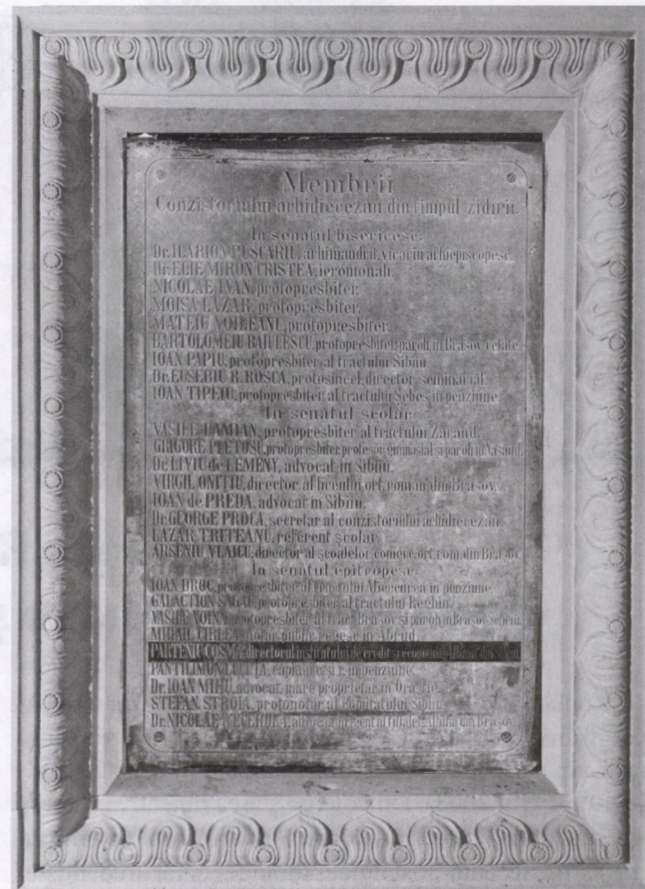 Membrii
Conzistoriului arhidiecezan din timpul zidirii.
In senatul bisericesc:
Dr. ILARION PUSCARIU, arhimandrit, vicariu arhiepiscopesc.
Dr. ELIE MIRON CRISTEA, ieromonah.
NICOLAE IVAN, protopresbiter.
MOISA LAZAR, protopresbiter.
MATEIU VOILEANU, protopresbiter.
BARTOLOMEIU BAIULESCU, protopresbiter, paroh in Brasov, cetate
IOAN PAPIU, protopresbiter al tractului Sibiiu
Dr. EUSEBIU R. ROSCA, protosincel, director seminarial.
IOAN TIPEIU, protopresbiter al tractului Sebes in penziune
In senatul scolar:
VASILE DAMIAN, protopresbiter al tractului Zarand.
GRIGORE PLETOSU, protopresbiter, profesor gimnasial si paroh in Nasaud.
Dr. LIVIU de LEMENY, advocat in Sibiiu.
VIRGIL ONITIU, director al liceului ort. roman din Brasov.
IOAN de PREDA, advocat in Sibiiu.
Dr. GEORGE PROCA, secretar al conzistoriului arhidiecezan.
LAZAR TRITEANU, referent şcolar
ARSENIU VLAICU, director al şcoalelor comerc. ort. rom. din Brasov
In senatul epitropesc:
IOAN DROC, protopresbiter al tractului Miercurea in penziune
GALACTION SAGAU, protopresbiter al tractului Reghin.
VASILE VOINA, protopresbiter al tract. Brasov si paroh in Brasov
MIHAIL CIRLEA, notar public regesc in Abrud.
PARTENIU COSMA, directorul institutului de credit si economii "Albina" din Sibiiu
PANTILIMON in penziune
Dr. IOAN MIHU, advocat, mare proprietar in Orastie
STEFAN STROIA, protonotar al comitatului Sibiiu
Dr. NICOLAE din Brasov